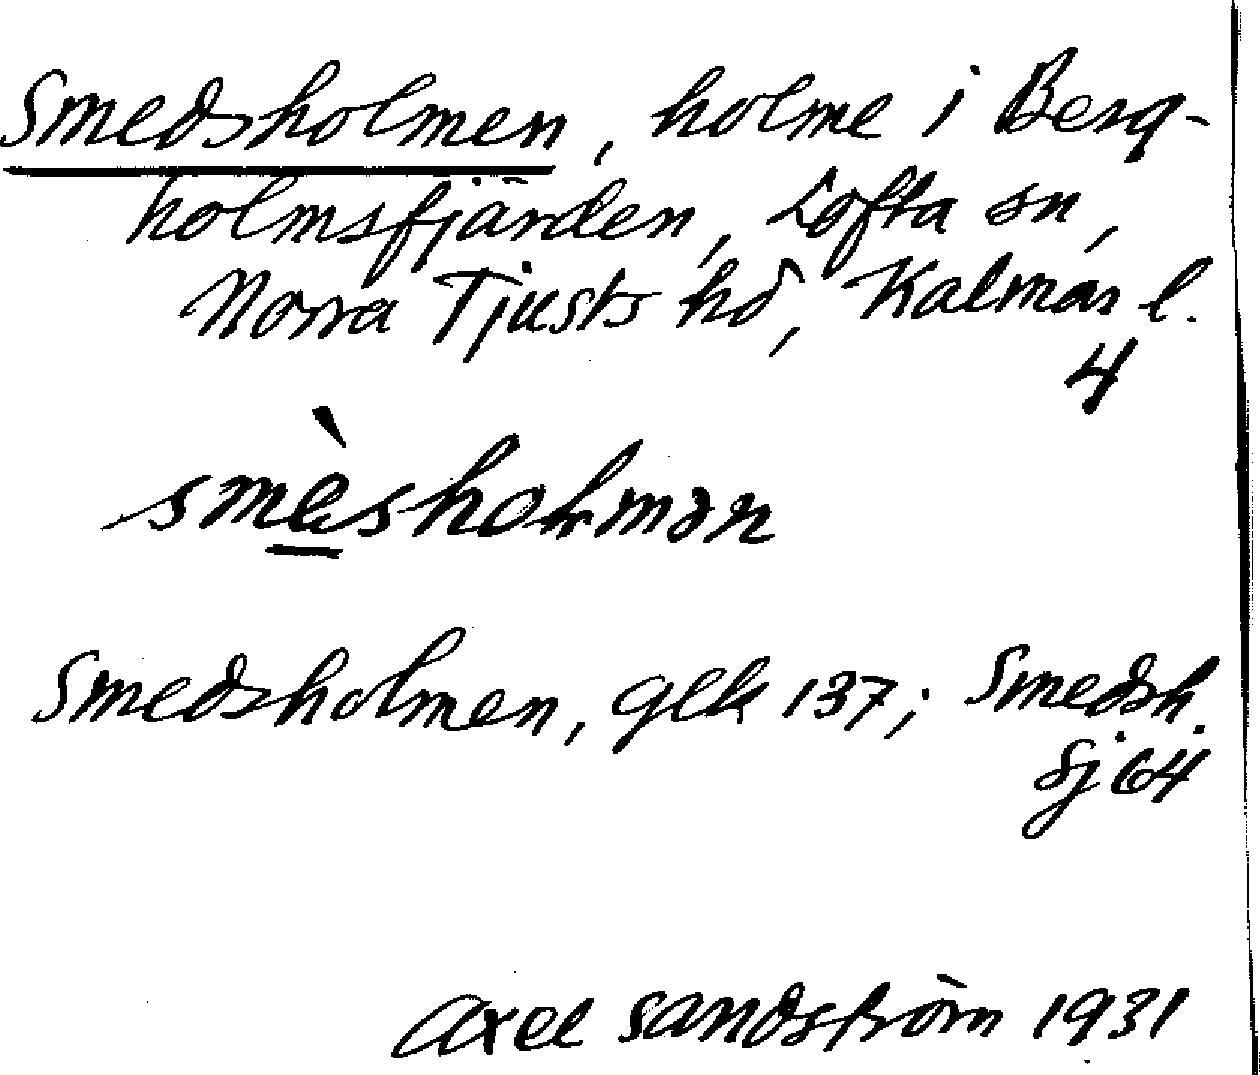 Smedsholmen, holme i Berg-
holmsfjärden, Lofta sn,
Norra Tjusts hd, Kalmar l.
4
smèsholmən
Smedsholmen, gek 137; Smedsh.
Sj 64
Axel Sandström 1931